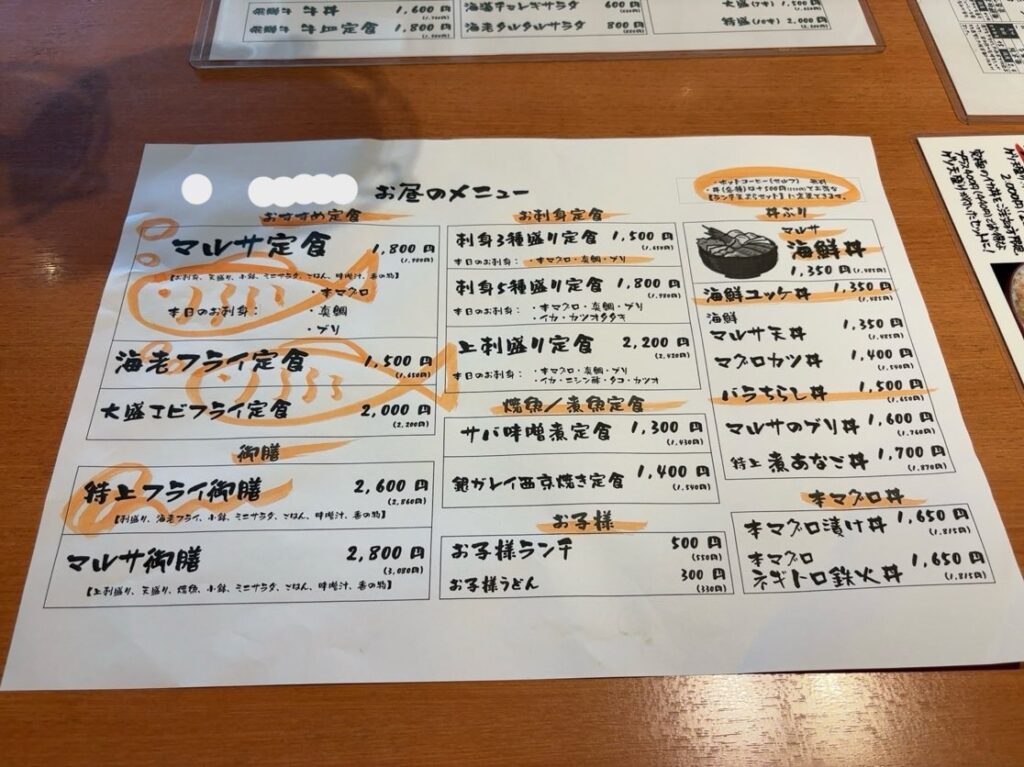 飛騨牛 牛丼 1,600円
飛騨牛 牛皿定食 1,800円
海藻チョレギサラダ 600円
海老タルタルサラダ 800円
大盛 1,500円
特盛 2,000円
お昼のメニュー
ホットコーヒー(セルフ) 無料
おすすめ定食
マルサ定食 1,800円
(1,980円)
【お刺身、天盛り、小鉢、ミニサラダ、ごはん、味噌汁、香の物】
本日のお刺身:
・本マグロ
・真鯛
・ブリ
海老フライ定食 1,500円
(1,650円)
大盛エビフライ定食 2,000円
(2,200円)
御膳
特上フライ御膳 2,600円
(2,860円)
【刺盛り、海老フライ、小鉢、ミニサラダ、ごはん、味噌汁、香の物】
マルサ御膳 2,800円
(3,080円)
【上刺盛り、天盛り、焼魚、小鉢、ミニサラダ、ごはん、味噌汁、香の物】
お刺身定食
刺身3種盛り定食 1,500円
(1,650円)
本日のお刺身:・本マグロ・真鯛・ブリ
刺身5種盛り定食 1,800円
(1,980円)
本日のお刺身:・本マグロ・真鯛・ブリ
・イカ・カツオタタキ
上刺盛り定食 2,200円
(2,420円)
本日のお刺身:・本マグロ・真鯛・ブリ
・イカ・ニシン酢・タコ・カツオ
焼魚/煮魚定食
サバ味噌煮定食 1,300円
(1,430円)
銀ガレイ西京焼き定食 1,400円
(1,540円)
お子様
お子様ランチ 500円
(550円)
お子様うどん 300円
(330円)
丼ぶり
マルサ
海鮮丼
1,350円(1,485円)
海鮮ユッケ丼 1,350円
(1,485円)
海鮮
マルサ天丼 1,350円
(1,485円)
マグロカツ丼 1,400円
(1,540円)
バラちらし丼 1,500円
(1,650円)
マルサのブリ丼 1,600円
(1,760円)
特上 煮あなご丼 1,700円
(1,870円)
本マグロ丼
本マグロ漬け丼 1,650円
(1,815円)
本マグロ
ネギトロ鉄火丼 1,650円
(1,815円)